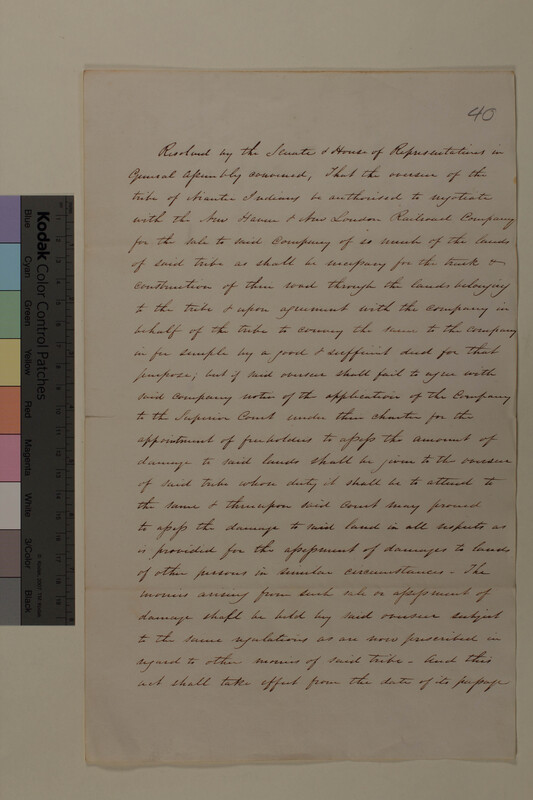 40
Resolved by the Senate & House of Representatives in
General Assembly convened, That the overseer of the
tribe of Niantic Indians be authorised to negotiate
with the New Haven & New London Railroad Company
for the sale to said Company of so much of the lands
of said tribe as shall be necessary for the track &
construction of their road through the lands belonging
to the tribe & upon agreement with the company in
behalf of the tribe to convey the same to the company
in fee simple by a good & sufficient deed for that
purpose; but if said overseer shall fail to agree with
said company notice of the application of the Company
to the Superior Court under their charter for the
appointment of freeholders to assess the amount of
damage to said lands shall be given to the overseer
of said tribe whose duty it shall be to attend to
the same & thereupon said court may proceed
to assess the damage to said land in all respects as
is provided for the assessment of damages to lands
of other persons in similar circumstances - The
monies arising from such sale or assessment of
damage shall be held by said overseer subject
to the same regulations as are now prescribed in
regard to other monies of said tribe - And this
act shall take effect from the date of its passage
Kodak Color Control Patches
Blue
Cyan
Green
Yellow
Red
Magenta
White
3/Color
Black